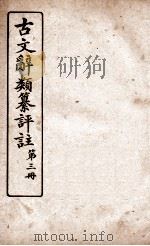 古文辭類纂評註 第三冊